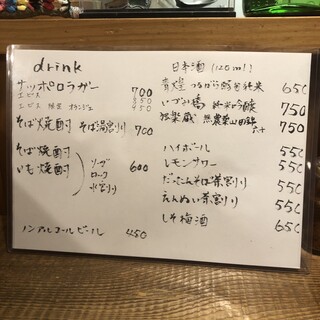 drink
サッポロラガー 700
エビス 550
エビス 450
そば焼酎 そば湯割り 700
そば焼酎 ソーダ
いも焼酎 ロック 600
水割り
ノンアルコールビール 450
日本酒(120ml)
青煌 純米 650
いづみ橋 純米吟醸 750
独楽蔵 無農薬山田錦 六十 750
ハイボール 550
レモンサワー 550
だったんそば茶割り 550
えんめい茶割り 550
しそ梅酒 650